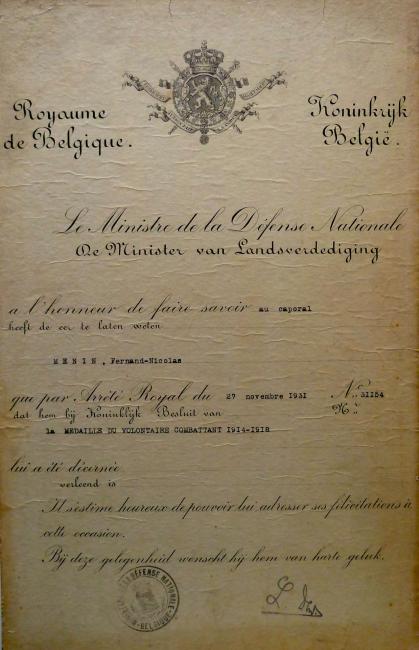 Royaume
de Belgique.
Koninkrijk
België.
Le Ministre de la Défense Nationale
De Minister van Landsverdediging
a l'honneur de faire savoir au caporal
heeft de eer te laten weten
MENIN, Fernand-Nicolas
que par Arrêté Royal du 27 novembre 1931 N° 31154
dat hem bij Koninklijk Besluit van N°
la MEDAILLE DU VOLONTAIRE COMBATTANT 1914-1918
lui a été décernée
verleend is
Il s'estime heureux de pouvoir lui adresser ses félicitations à
cette occasion.
Bij deze gelegenheid wenscht hij hem van harte geluk.
DEFENSE NATIONALE
BELGIQUE